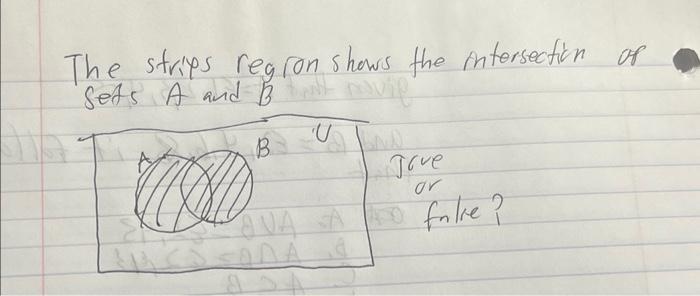 The strips region shows the intersection of
Sets A and B
A B U
True
or
false?